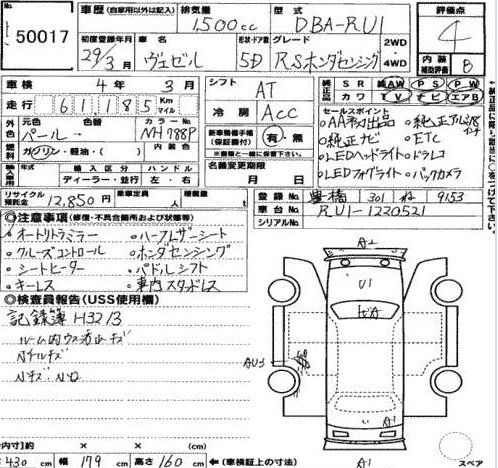 出品番号 50017
車歴 (自家用以外は記入) 排気量 1500cc 型式 DBA-RU1 評価点 4
初度登録年月 29/3 月 車名 ヴェゼル 形状・ドア数 5D グレード RSホンダセンシング 2WD 4WD
内装 補助評価 B
車検 4年 3月 シフト AT
純正品 SR カワ AW TV PS ナビ PW エアB
走行 61185 Km マイル
冷房 ACC
セールスポイント
外色 元色 パール 色替 カラーNo. NH788P
新車整備手帳 (保証書付) 有・無
※書類と一緒に保管して下さい。
○AA
○純正ナビ ○ETC
○LEDヘッドライト ○ドラレコ
○LEDフォグライト ○バックカメラ
燃料 ガソリン・軽油・( ) 内装色
名義変更期限 月 日
輸入車用 年式 輸入区分 ディーラー・並行 ハンドル 左・右
リサイクル預託金 12,850円 乗車定員 人 積載量 t
登録No. 豊橋 301 ね 9153
車台No. RU1-1220521
シリアルNo.
◎注意事項 (修復・不具合箇所および状態等)
オートリトラミラー ○ハーフレザーシート
○クルーズコントロール ○ホンダセンシング
○シートヒーター ○パドルシフト
○キーレス ○車内スタッドレス
◎検査員報告 (USS使用欄)
記録簿 H32/3
ルーム内ウス汚レキズ
Nキズ
A2
U1
AU3
A1
A1
内寸】約 × × (cm)
430 cm 幅 179 cm 高さ 160 cm ←(車検証上の寸法)
スペア